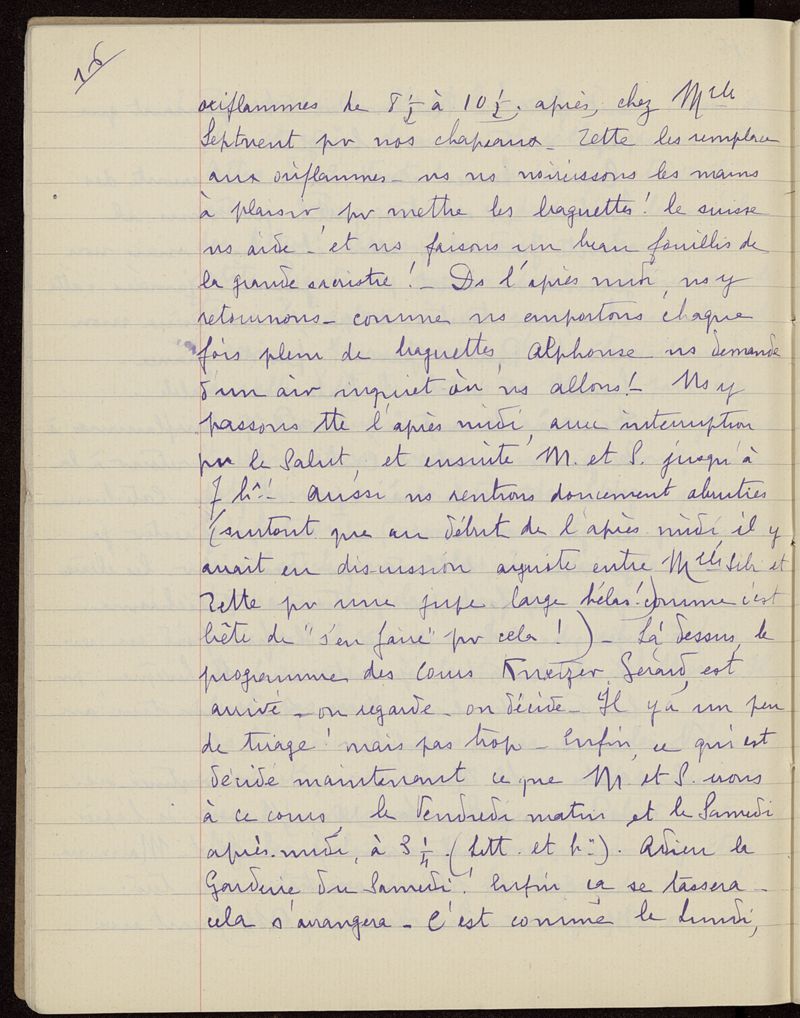 16
oriflammes de 8 1/2 à 10 1/2. après, chez Melle
Septvent pr nos chapeaux _ Zette les remplace
aux oriflammes _ ns ns noircissons les mains
à plaisir pr mettre les baguettes ! le suisse
ns aide _ et ns faisons un beau fouillis de
la grande sacristie ! _ Ds l'après midi, ns y
retournons _ comme ns emportons chaque
fois plein de baguettes, Alphonse ns demande
d'un air inquiet où ns allons ! _ Ns y
passons tte l'après midi, avec interruption
pr le Salut, et ensuite M. et S. jusqu'à
7 hres ! aussi ns rentrons doucement abruties
(surtout que au début de l'après midi il y
avait eu discussion entre Melle et
Zette pr une jupe large hélas ! comme c'est
bête de "s'en faire" pr cela ! ) _ Là dessus, le
programme des Cours Gérard, est
arrivé _ on regarde _ on décide _ Il y a un peu
de tirage ! mais pas trop _ Enfin, ce qui est
décidé maintenant ce que M. et S. irons
à ce cours, le Vendredi matin et le Samedi
après-midi, à 3 1/4. (Litt. et hre). Adieu la
Garderie du Samedi ! Enfin ça se tassera _
cela s'arrangera _ C'est comme le Lundi,